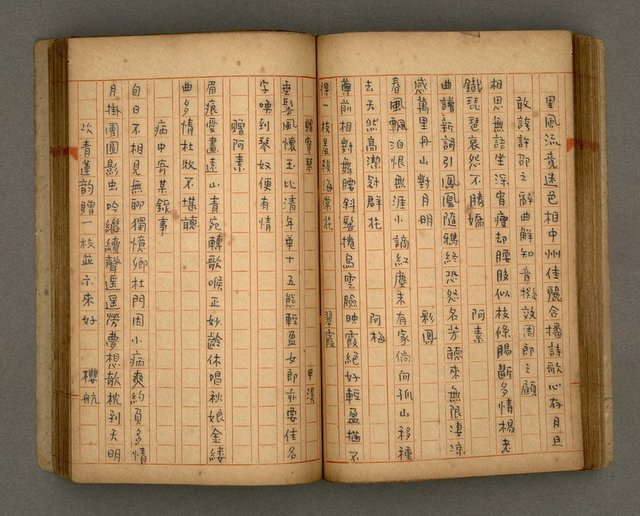 里風流竟迷色相中州佳麗合播詩歌心存月旦
敢誇許邵之辭曲解知音擬效周郎之顧
阿素
相思無語坐深宵瘦却腰肢似枝條腸斷多情楊老
鐵琵琶哀怨不勝嬌
彩鳳
曲譜新詞引鳳凰隨鴉終恐怨名芳聽來無限淒涼
感萬里丹山對月明
阿梅
春風飄泊恨無涯小謫紅塵未有家倘向孤山移種
去天然高潔針群花
翠霞
尊前相對舞腰斜髻捲烏雲臉映霞絕好輕盈描不
得一枝羞殺海棠花
贈寶琴
垂髫風懷玉比清年華十五態輕盈女郎亦要佳名
字喚到琴奴便有情
贈阿素
眉痕愛畫遠山青宛轉歌喉正妙齡休唱秋娘金縷
曲多情杜牧不堪聽
病中寄某叙事
旬日不相見無聊獨憶卿杜門因小病爽約負多情
月掛團團影虫吟繼續聲遥遥勞夢想欹枕到天明
次青蓮韵贈一枝並示來好 櫻航